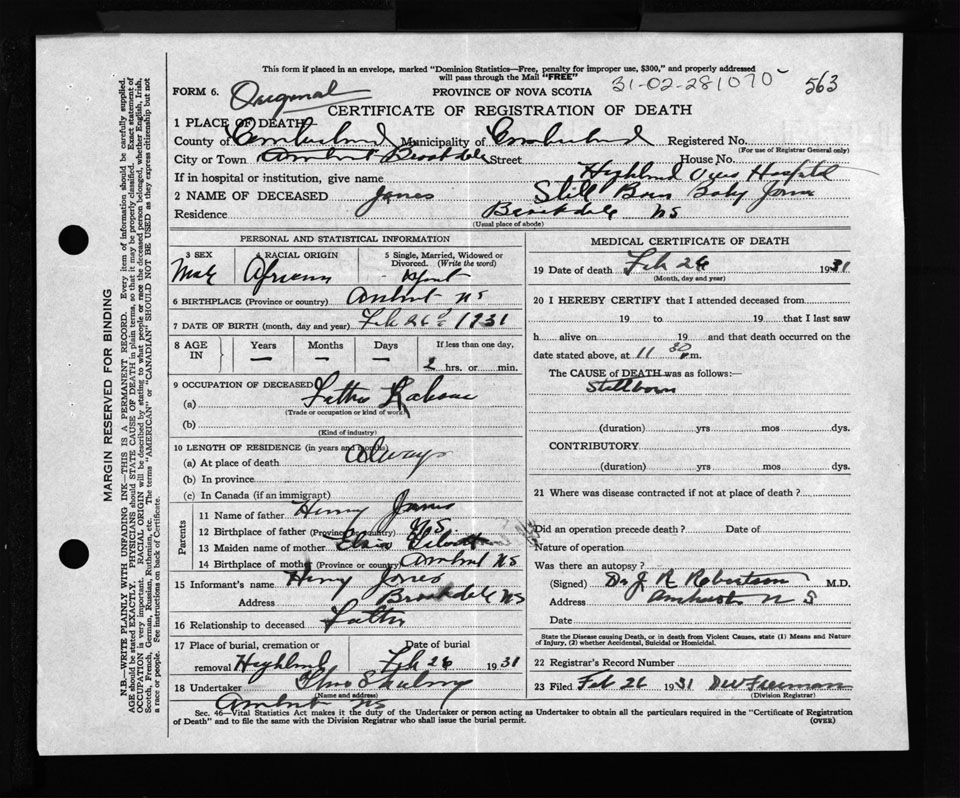 This form if placed in an envelope, marked "Dominion Statistics—Free, penalty for improper use, $300," and properly addressed
will pass through the Mail "FREE"
31-02-281070
563
FORM 6.
Original
PROVINCE OF NOVA SCOTIA
CERTIFICATE OF REGISTRATION OF DEATH
1 PLACE OF DEATH
County of Cumberland Municipality of Cumberland Registered No.
(For use of Registrar General only)
City or Town Amherst Brookdale Street House No.
If in hospital or institution, give name Highland View Hospital
2 NAME OF DECEASED Jones Still Born Baby Jones
Residence Brookdale NS
(Usual place of abode)
PERSONAL AND STATISTICAL INFORMATION
3 SEX 4 RACIAL ORIGIN 5 Single, Married, Widowed or
Divorced. (Write the word)
Male African
6 BIRTHPLACE (Province or country) Amherst NS
7 DATE OF BIRTH (month, day and year) Feb 26 1931
8 AGE IN Years Months Days If less than one day,
— — — 2 hrs. or min.
9 OCCUPATION OF DECEASED
(a) Father
(Trade or occupation or kind of work)
(b)
(Kind of industry)
10 LENGTH OF RESIDENCE (in years and months)
(a) At place of death Always
(b) In province
(c) In Canada (if an immigrant)
Parents
11 Name of father Henry Jones
12 Birthplace of father (Province or country) N.S.
13 Maiden name of mother Elsie
14 Birthplace of mother (Province or country) Amherst NS
15 Informant's name Henry Jones
Address Brookdale NS
16 Relationship to deceased Father
17 Place of burial, cremation or Date of burial
removal Highland Feb 26 1931
18 Undertaker
(Name and address)
Amherst NS
MEDICAL CERTIFICATE OF DEATH
19 Date of death Feb 26 1931
(Month, day and year)
20 I HEREBY CERTIFY that I attended deceased from
19 to 19 that I last saw
h alive on 19 and that death occurred on the
date stated above, at 11 30 p.m.
The CAUSE of DEATH was as follows:—
Stillborn
(duration) yrs mos dys.
CONTRIBUTORY
(duration) yrs mos dys.
21 Where was disease contracted if not at place of death?
Did an operation precede death? Date of
Nature of operation
Was there an autopsy?
(Signed) Dr J R Robertson M.D.
Address Amherst N S
Date
State the Disease causing Death, or in death from Violent Causes, state (1) Means and Nature
of Injury, (2) whether Accidental, Suicidal or Homicidal.
22 Registrar's Record Number
23 Filed Feb 26 1931 D W Freeman
(Division Registrar)
Sec. 46—Vital Statistics Act makes it the duty of the Undertaker or person acting as Undertaker to obtain all the particulars required in the "Certificate of Registration
of Death" and to file the same with the Division Registrar who shall issue the burial permit.
(OVER)
MARGIN RESERVED FOR BINDING
N.B.—WRITE PLAINLY WITH UNFADING INK—THIS IS A PERMANENT RECORD. Every item of information should be carefully supplied.
AGE should be stated EXACTLY. PHYSICIANS should STATE CAUSE OF DEATH in plain terms, so that it may be properly classified. Exact statement of
OCCUPATION is very important. RACIAL ORIGIN will be described by stating to what people or race the deceased person belonged, whether English, Irish,
Scotch, French, German, Russian, Ruthenian, etc. The terms "AMERICAN" or "CANADIAN" SHOULD NOT BE USED as they express citizenship but not
a race or people. See instructions on back of Certificate.